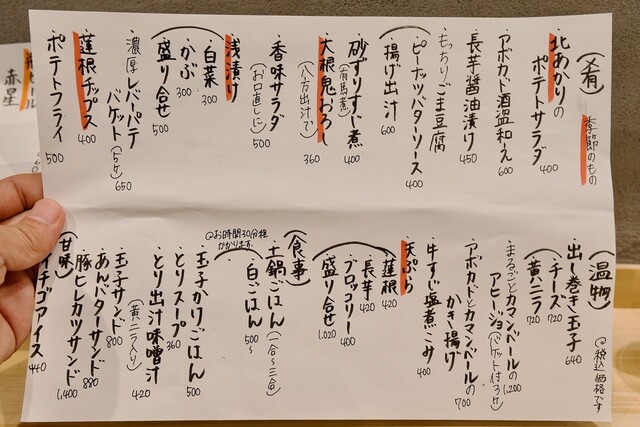 (肴)
季節のもの
・北あかりの
ポテトサラダ 400
・アボカド酒盗和え 600
・長芋醤油漬け 450
・もっちりごま豆腐
・ピーナッツバターソース 400
・揚げ出汁 600
・砂ずりすじ煮 400
(有馬煮)
・大根鬼おろし 360
(八方出汁で)
・香味サラダ 500
(お口直しに)
・浅漬け
・白菜 300
・かぶ 300
・盛り合せ 500
・濃厚レバーパテ
バケット(5ヶ) 650
・蓮根チップス 400
・ポテトフライ 500
(温物)
◎税込価格です
・出し巻き玉子 640
・チーズ 720
・黄ニラ 720
・まるごとカマンベールの
アヒージョ 1,200
(バケット付3ヶ)
・アボカドとカマンベールの
かき揚げ 700
・牛すじ塩煮こみ 400
・天ぷら
・蓮根 420
・長芋 420
・ブロッコリー 400
・盛り合せ 1,020
(食事)
・土鍋ごはん
(一合〜三合)
・白ごはん 500〜
◎お時間30分程
かかります。
・玉子かけごはん 500
・とりスープ 360
・とり出汁味噌汁 420
・玉子サンド 800
(黄ニラ入り)
・あんバターサンド 880
・豚ヒレカツサンド 1,400
(甘味)
イチゴアイス 440
赤星